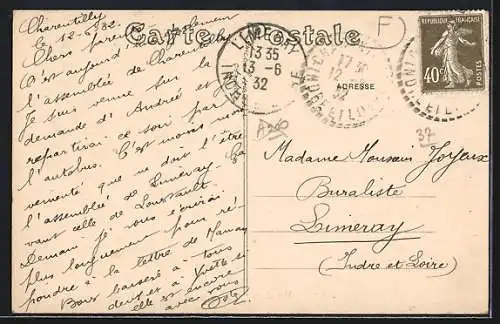 Charentilly
le 12-6-32
Chers parents et Clément
C'est aujourd'hui
l'assemblée de Charentilly
Je suis venue sur la
demande d'Andrée et je
repartirai ce soir par
l'autobus. C'est moins mou-
vementé que ne doit l'être
l'assemblée à Limeray. Ça
vaut celle de
Demain je vous écrirai
plus longuement pour ré-
pondre à la lettre de Maman
Bons baisers à tous
deux et à Yvette si
elle est encore
avec vous
Carte Postale
LIMERAY
13 35
13 -6
32
INDRE-ET-LOIRE
17 30
12
32
INDRE-ET-LOIRE
F
ADRESSE
RÉPUBLIQUE FRANÇAISE
40c
POSTES
37
Madame Toussain Joyeux
Buraliste
Limeray
(Indre et Loire)